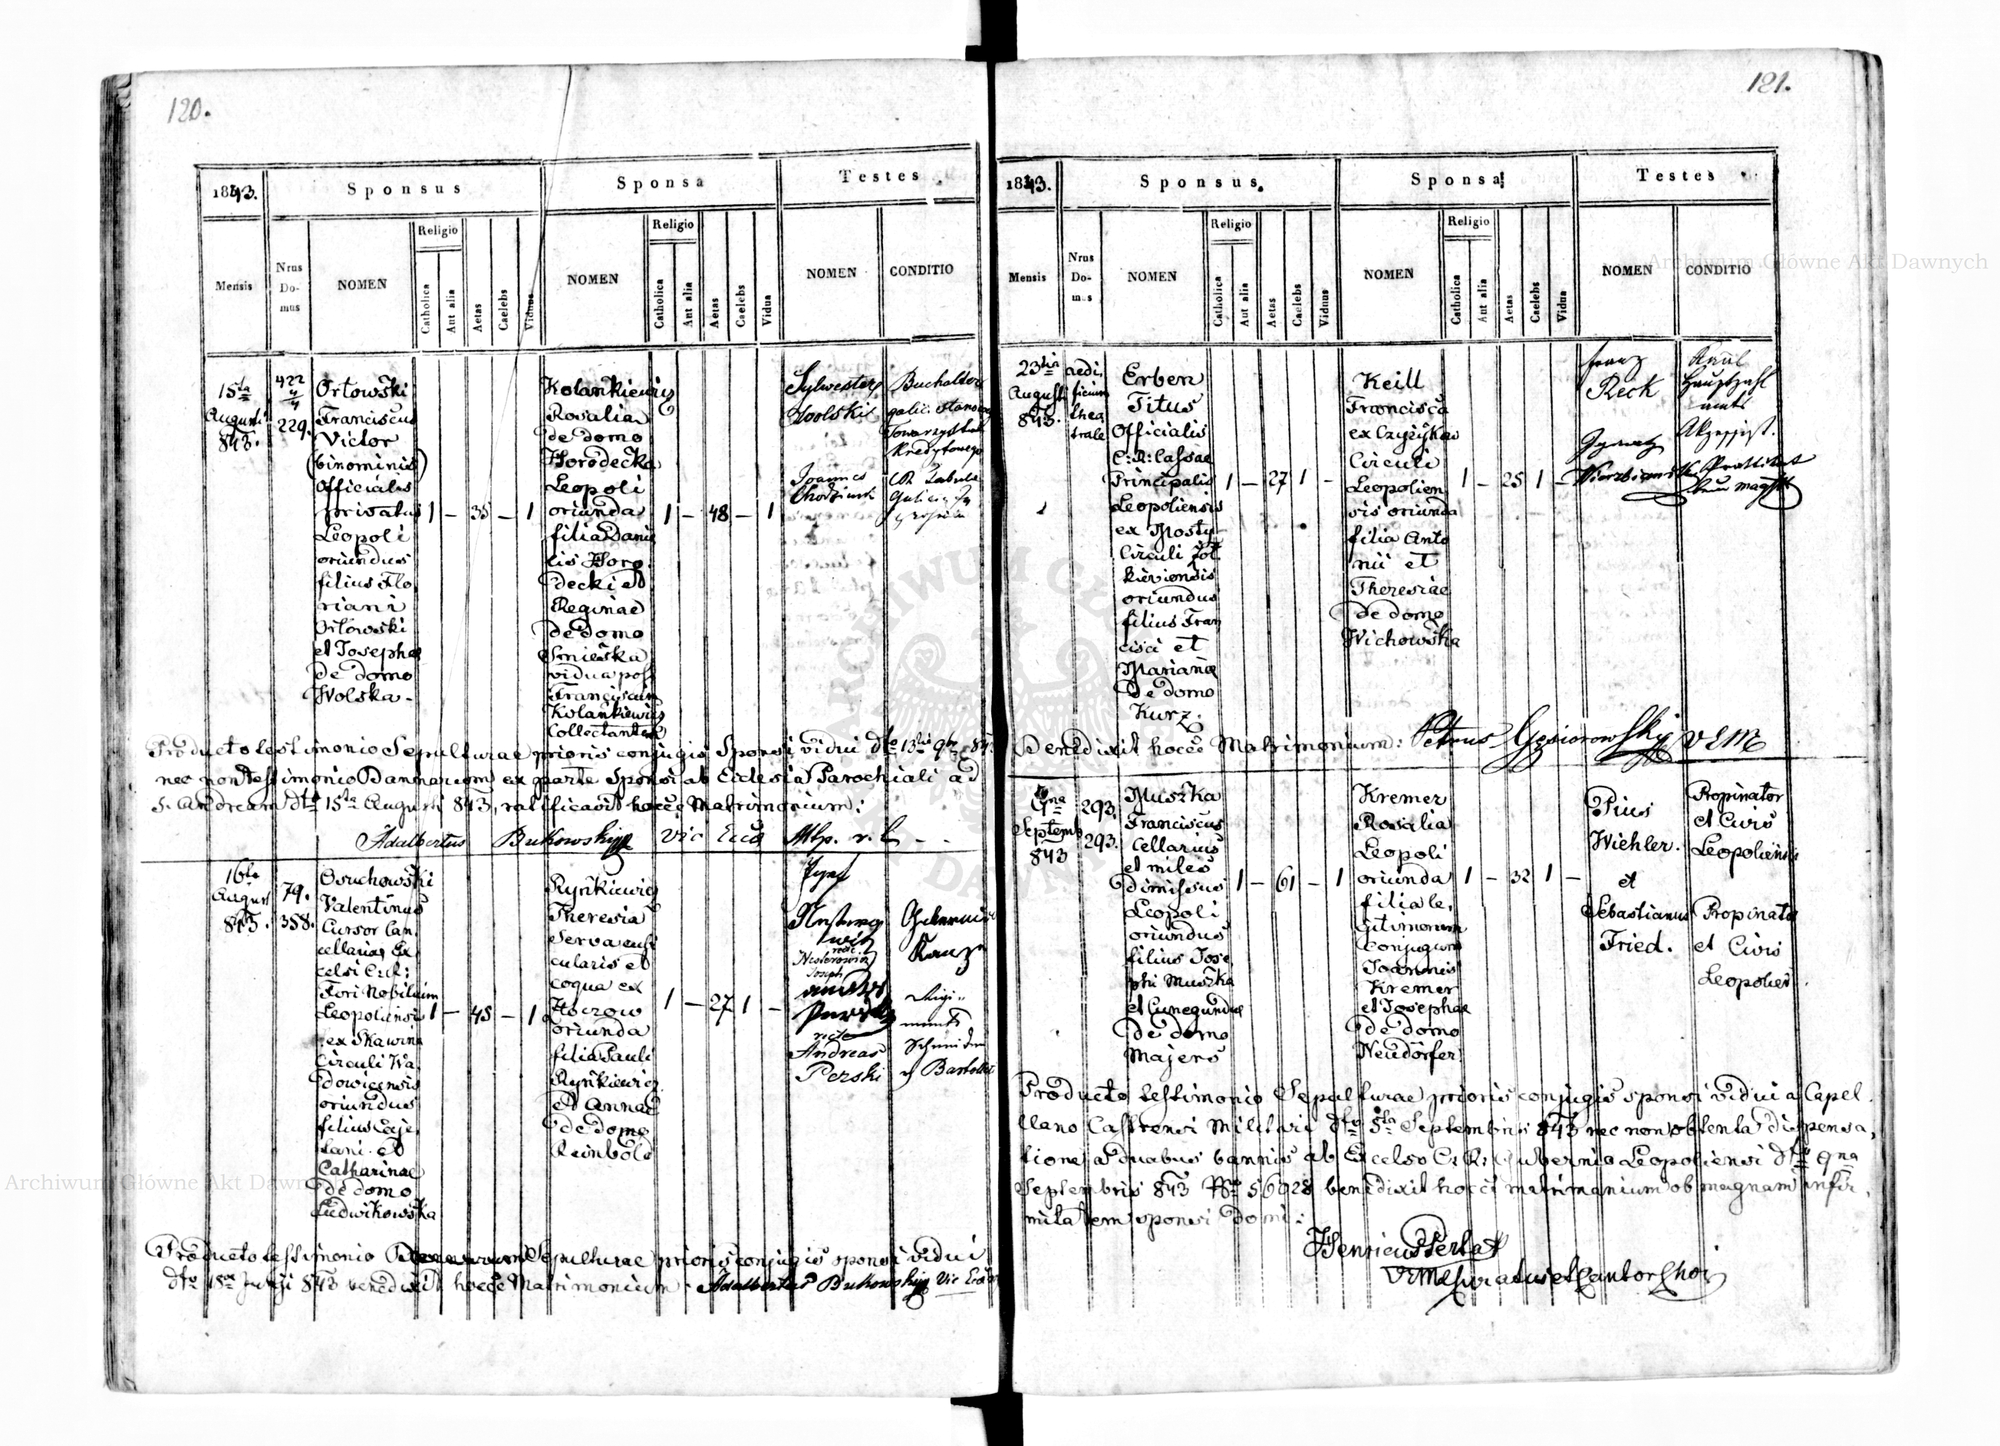 120.
1843.
Sponsus
Sponsa
Testes
Mensis
Nrus
Do-
mus
NOMEN
Religio
Catholica
Aut alia
Aetas
Caelebs
Viduus
NOMEN
Religio
Catholica
Aut alia
Aetas
Caelebs
Vidua
NOMEN
CONDITIO
15ta
Augusti
843.
422
4/4
229.
Orłowski
Franciscus
Victor
(binominis)
Officialis
privatus
Leopoli
oriundus
filius Flo
riani
Orłowski
et Josephae
de domo
Wolska -
1 - 35 - 1
Kolankiewicz
Rosalia
de domo
Horodecka
Leopoli
oriunda
filia Danie
lis Horo
decki et
Reginae
de domo
vidua post
Franciscum
Kolankiewicz
Collectantem
1 - 48 - 1
Sylwester
Buchalter
galic. stanowego
Towarzystwa
Kredytowego
Joannes
Producto testimonio Sepulturae prioris conjugis Sponsi vidui dto 13tia 9br 84
nec non testimonio Bannorum ex parte Sponsi ab Ecclesia Parochiali ad
S. Andream dto 15ta Augusti 843, ratificavit hocce Matrimonium:
Adalbertus Bukowski Vic Eccl
16ta
Augusti
843.
79.
358.
Osuchowski
Valentinus
Cursor Can
cellariae Ex
celsi
Fori Nobilium
Leopoliensis
ex Skawina
Circuli Wa
dowicensis
oriundus
filius Caje
tani et
Catharinae
de domo
Ludwikowska
1 - 45 - 1
Rynkiewicz
Theresia
Serva
cularis et
coqua ex
oriunda
filia Pauli
Rynkiewicz
et Annae
de domo
Reinbold
1 - 27 1 -
recte
Nesterowicz
Joseph
recte
Andreas
Perski
Schneider
Producto testimonio Sepulturae prioris conjugis sponsi vidui
843 benedixit hocce Matrimonium. Adalbertus Bukowski Vic Eccl
121.
1843.
Sponsus.
Sponsa
Testes
Mensis
Nrus
Do-
mus
NOMEN
Religio
Catholica
Aut alia
Aetas
Caelebs
Viduus
NOMEN
Religio
Catholica
Aut alia
Aetas
Caelebs
Vidua
NOMEN
CONDITIO
23tia
Augusti
843.
aedi
ficium
thea
trale
Erben
Titus
Officialis
C: R: Cassae
Principalis
Leopoliensis
ex Mosty
Circuli Żół
kieviensis
oriundus
filius Fran
cisci et
Marianae
de domo
Kurz.
1 - 27 1 -
Keill
Francisca
ex Czyżyków
Circuli
Leopolien
sis oriunda
filia Anto
nii et
Theresiae
de domo
Wichowska
1 - 25 1 -
Franz
Reck
Benedixit hocce Matrimonium: Petrus Gąsiorowski VEM
9na
Septemb
843
293.
293.
Muszka
Franciscus
Cellarius
et miles
dimissus
Leopoli
oriundus
filius Jose
phi Muszka
et Cunegundae
de domo
Majers
1 - 61 - 1
Kremer
Rosalia
Leopoli
oriunda
filia le,
gitimorum
Conjugum
Joannis
Kremer
et Josephae
de domo
Neudörfer
1 - 32 1 -
Pius
Wiehler.
et
Sebastianus
Fried.
Propinator
et Civis
Leopoliensis
Propinator
et Civis
Leopolien
Producto testimonio Sepulturae prioris conjugis sponsi vidui a Capel
llano Castrensi Militari dto 5ta Septembris 843 nec non obtenta dispensa,
tione a duabus bannis ab Excelso C. R. Gubernio Leopoliensi dto 9na
Septembris 843 Nro 56928 benedixit hocce matrimonium ob magnam infir,
mitatem sponsi domi:
Archiwum Główne Akt Dawnych
Archiwum Główne Akt Dawnych